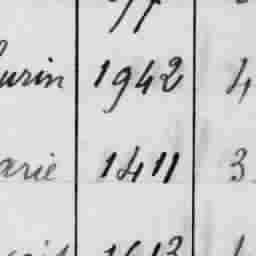 urin 1942 4
arie 1411 3